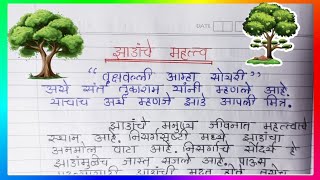 DATE
झाडांचे महत्त्व
"वृक्षवल्ली आम्हा सोयरी"
असे संत तुकाराम यांनी म्हणले आहे.
याचाच अर्थ म्हणजे झाडे आपली मित्र.
झाडांचे मनुष्य जीवनात महत्त्वाचे
स्थान आहे. निसर्गसृष्टी मध्ये झाडांचा
अनमोल वाटा आहे. निसर्गाचे सौंदर्य हे
झाडांमुळेच जास्त सजले आहे. पाऊस